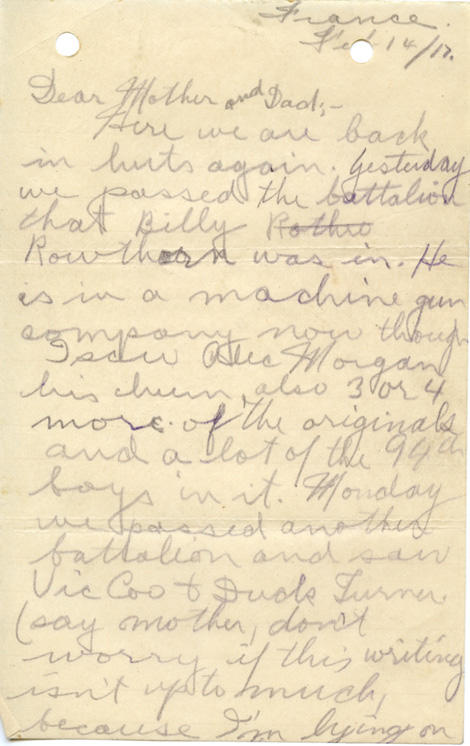 France.
Feb 14/17.
Dear Mother and Dad;-
Here we are back
in huts again. Yesterday
we passed the battalion
that Billy Rothw
Rowthorn was in. He
is in a machine gun
company now though
I saw Alec Morgan
his chum, also 3 or 4
more of the originals
and a lot of the 94th
boys in it. Monday
we passed another
battalion and saw
Vic Coo & Duds Turner.
(say mother, don't
worry if this writing
isn't up to much,
because I'm lying on